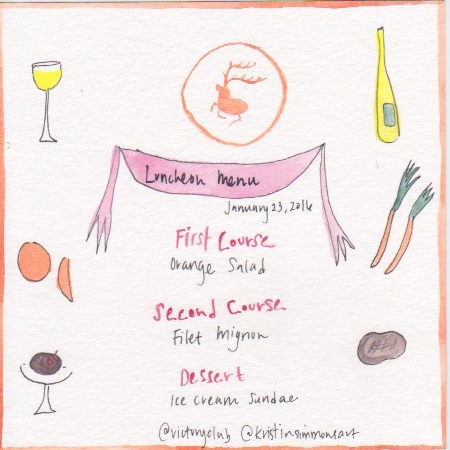 Luncheon Menu
January 23, 2016
First Course
Orange Salad
Second Course
Filet Mignon
Dessert
Ice cream Sundae
@victoryclub @kristinsimmonsart